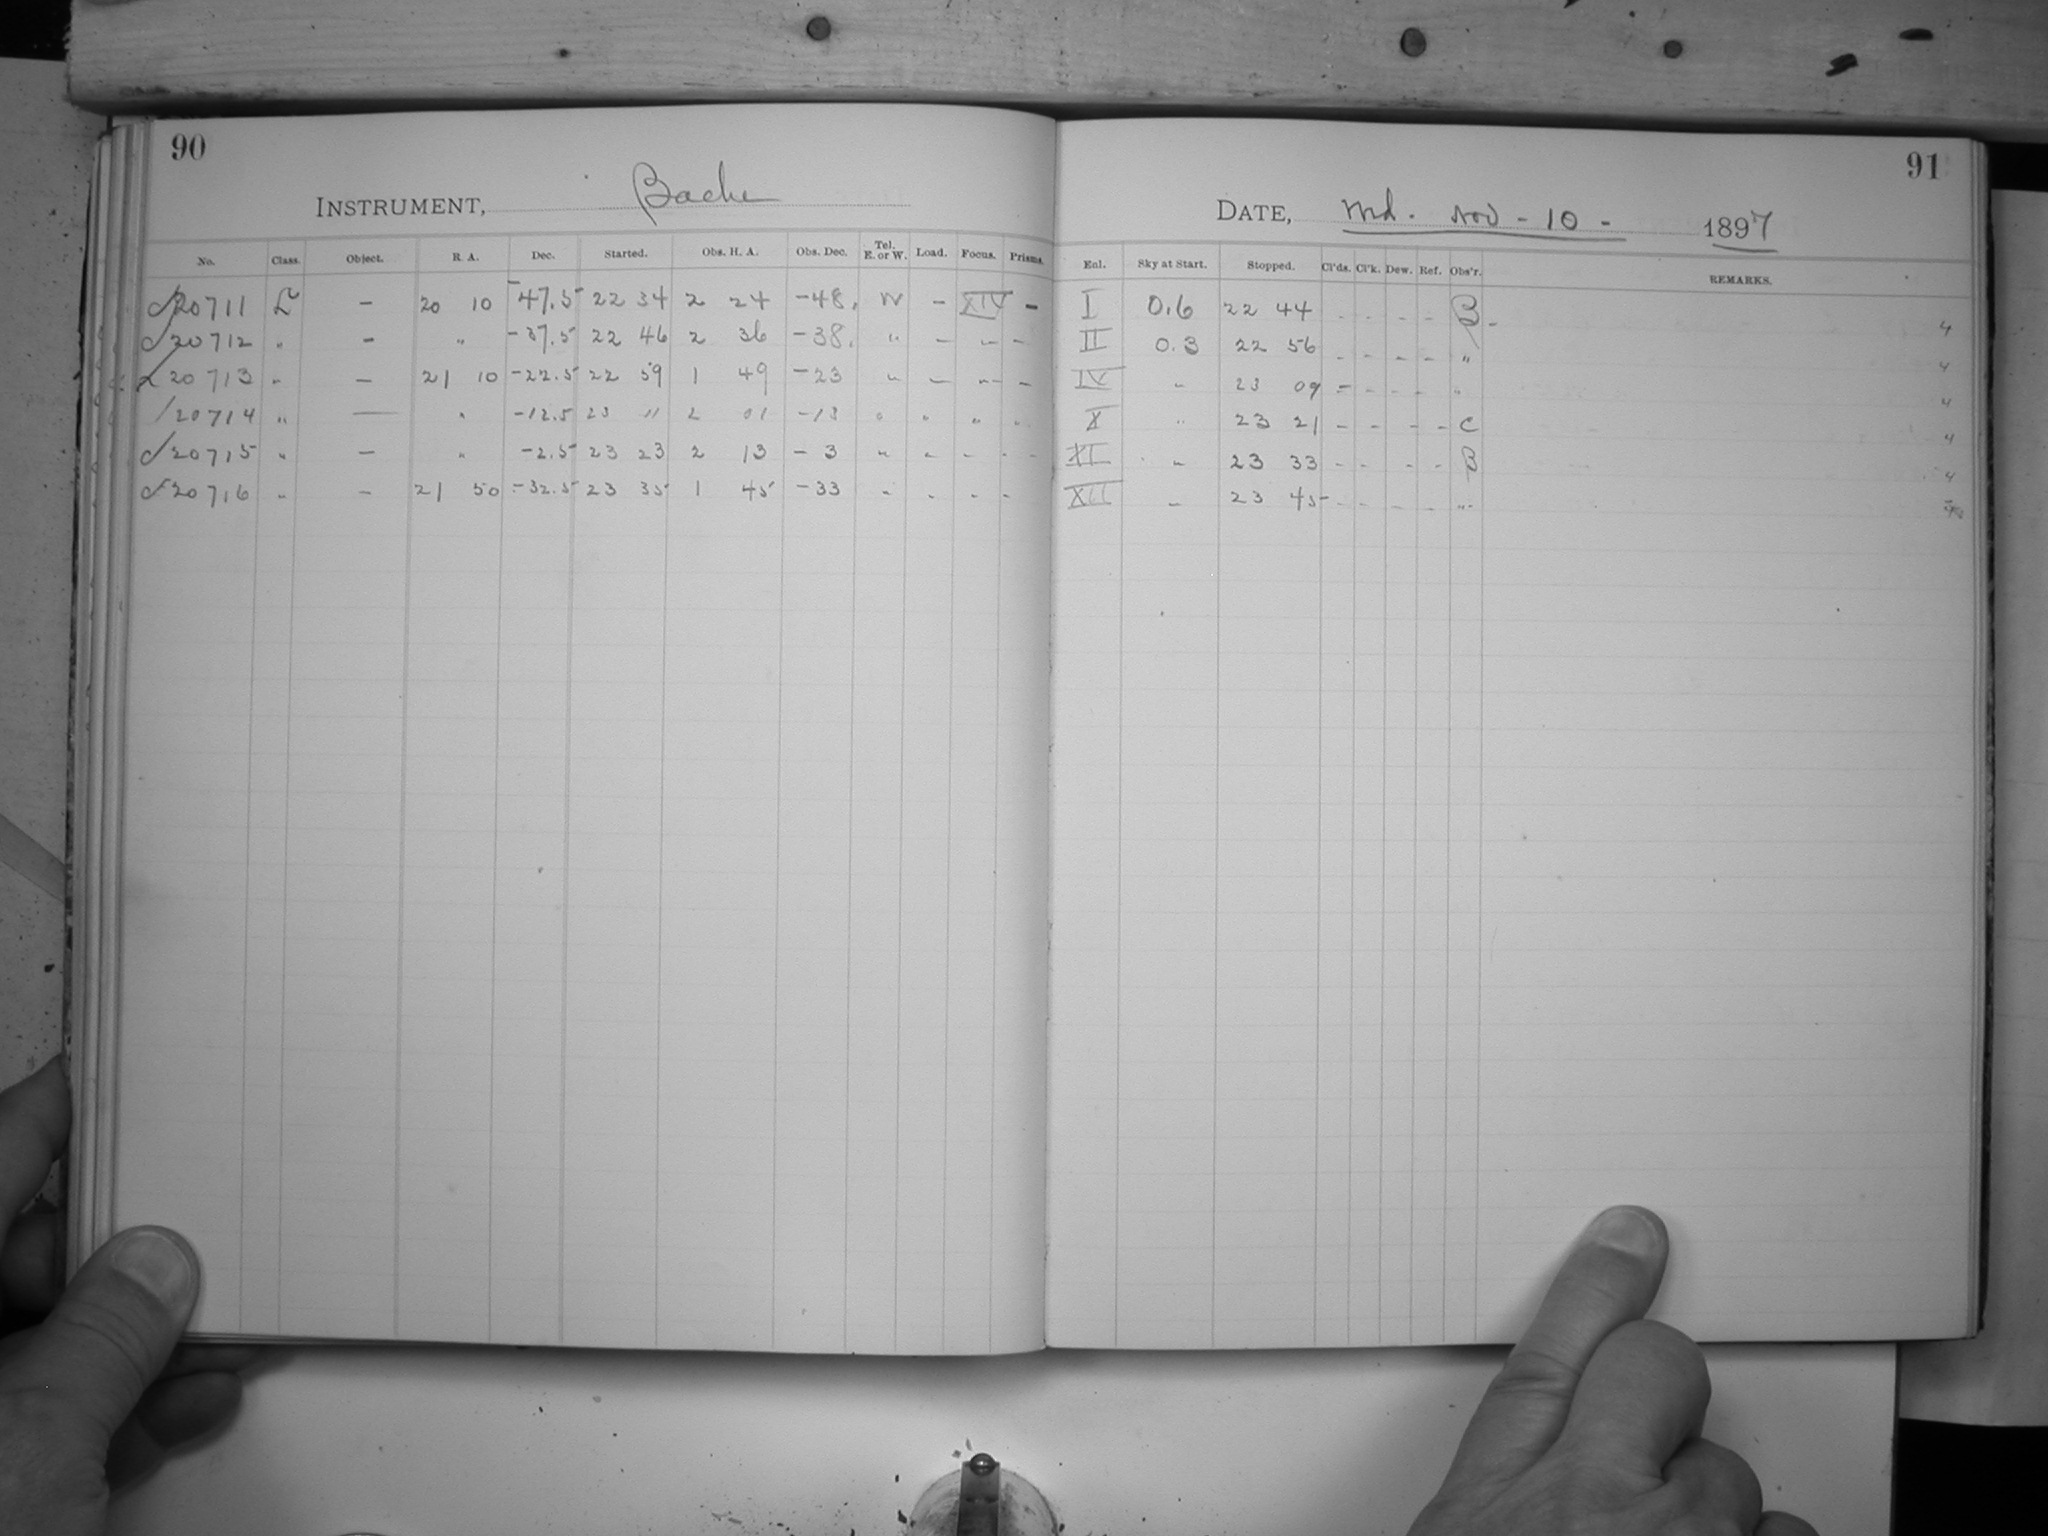 90
INSTRUMENT, Bache
No. Class. Object. R. A. Dec. Started. Obs. H. A. Obs. Dec. Tel. E. or W. Load. Focus. Prisms.
20711 L - 20 10 -47.5 22 34 2 24 -48. W - XIV -
20712 " - " -37.5 22 46 2 36 -38. " - - -
20713 " - 21 10 -22.5 22 59 1 49 -23 " - - -
20714 " — " -12.5 23 11 2 01 -13 " " " "
20715 " - " -2.5 23 23 2 13 - 3 " " - -
20716 " - 21 50 -32.5 23 35 1 45 -33 " " - -
91
DATE, Wd. Nov - 10 - 1897
Enl. Sky at Start. Stopped. Cl'ds. Cl'k. Dew. Ref. Obs'r. REMARKS.
I 0.6 22 44 - - - - B - 4
II 0.3 22 56 - - - - " 4
IV " 23 09 - - - - " 4
X " 23 21 - - - - C 4
XI " 23 33 - - - - B 4
XII " 23 45 - - - - "